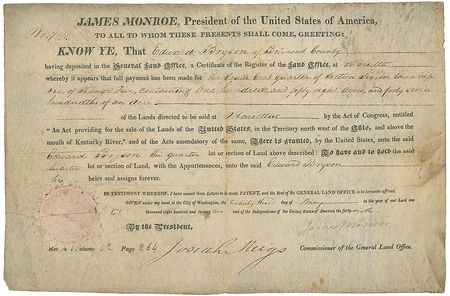 JAMES MONROE, President of the United States of America,
TO ALL TO WHOM THESE PRESENTS SHALL COME, GREETING:
KNOW YE, That Edward Bryson of Belmont County
having deposited in the General Land Office, a Certificate of the Register of the Land Office, at Marietta
whereby it appears that full payment has been made for the South East quarter of Section Six, in township
Six of Range Five, containing One hundred and fifty eight acres, and forty seven
hundredths of an acre
of the Lands directed to be sold at Marietta by the Act of Congress, entitled
“An Act providing for the sale of the Lands of the United States, in the Territory north west of the Ohio, and above the
mouth of Kentucky River,” and of the Acts amendatory of the same, There is granted, by the United States, unto the said
Edward Bryson the quarter lot or section of Land above described: To have and to hold the said
quarter lot or section of Land, with the Appurtenances, unto the said Edward Bryson
his heirs and assigns forever.
IN TESTIMONY WHEREOF, I have caused these Letters to be made PATENT, and the Seal of the GENERAL LAND OFFICE to be hereunto affixed.
GIVEN under my hand at the City of Washington, the twenty third day of May in the year of our Lord one
thousand eight hundred and and of the Independence of the United States of America the forty
By the President, James Monroe
Volume 62 Page 264 Josiah Meigs Commissioner of the General Land Office.